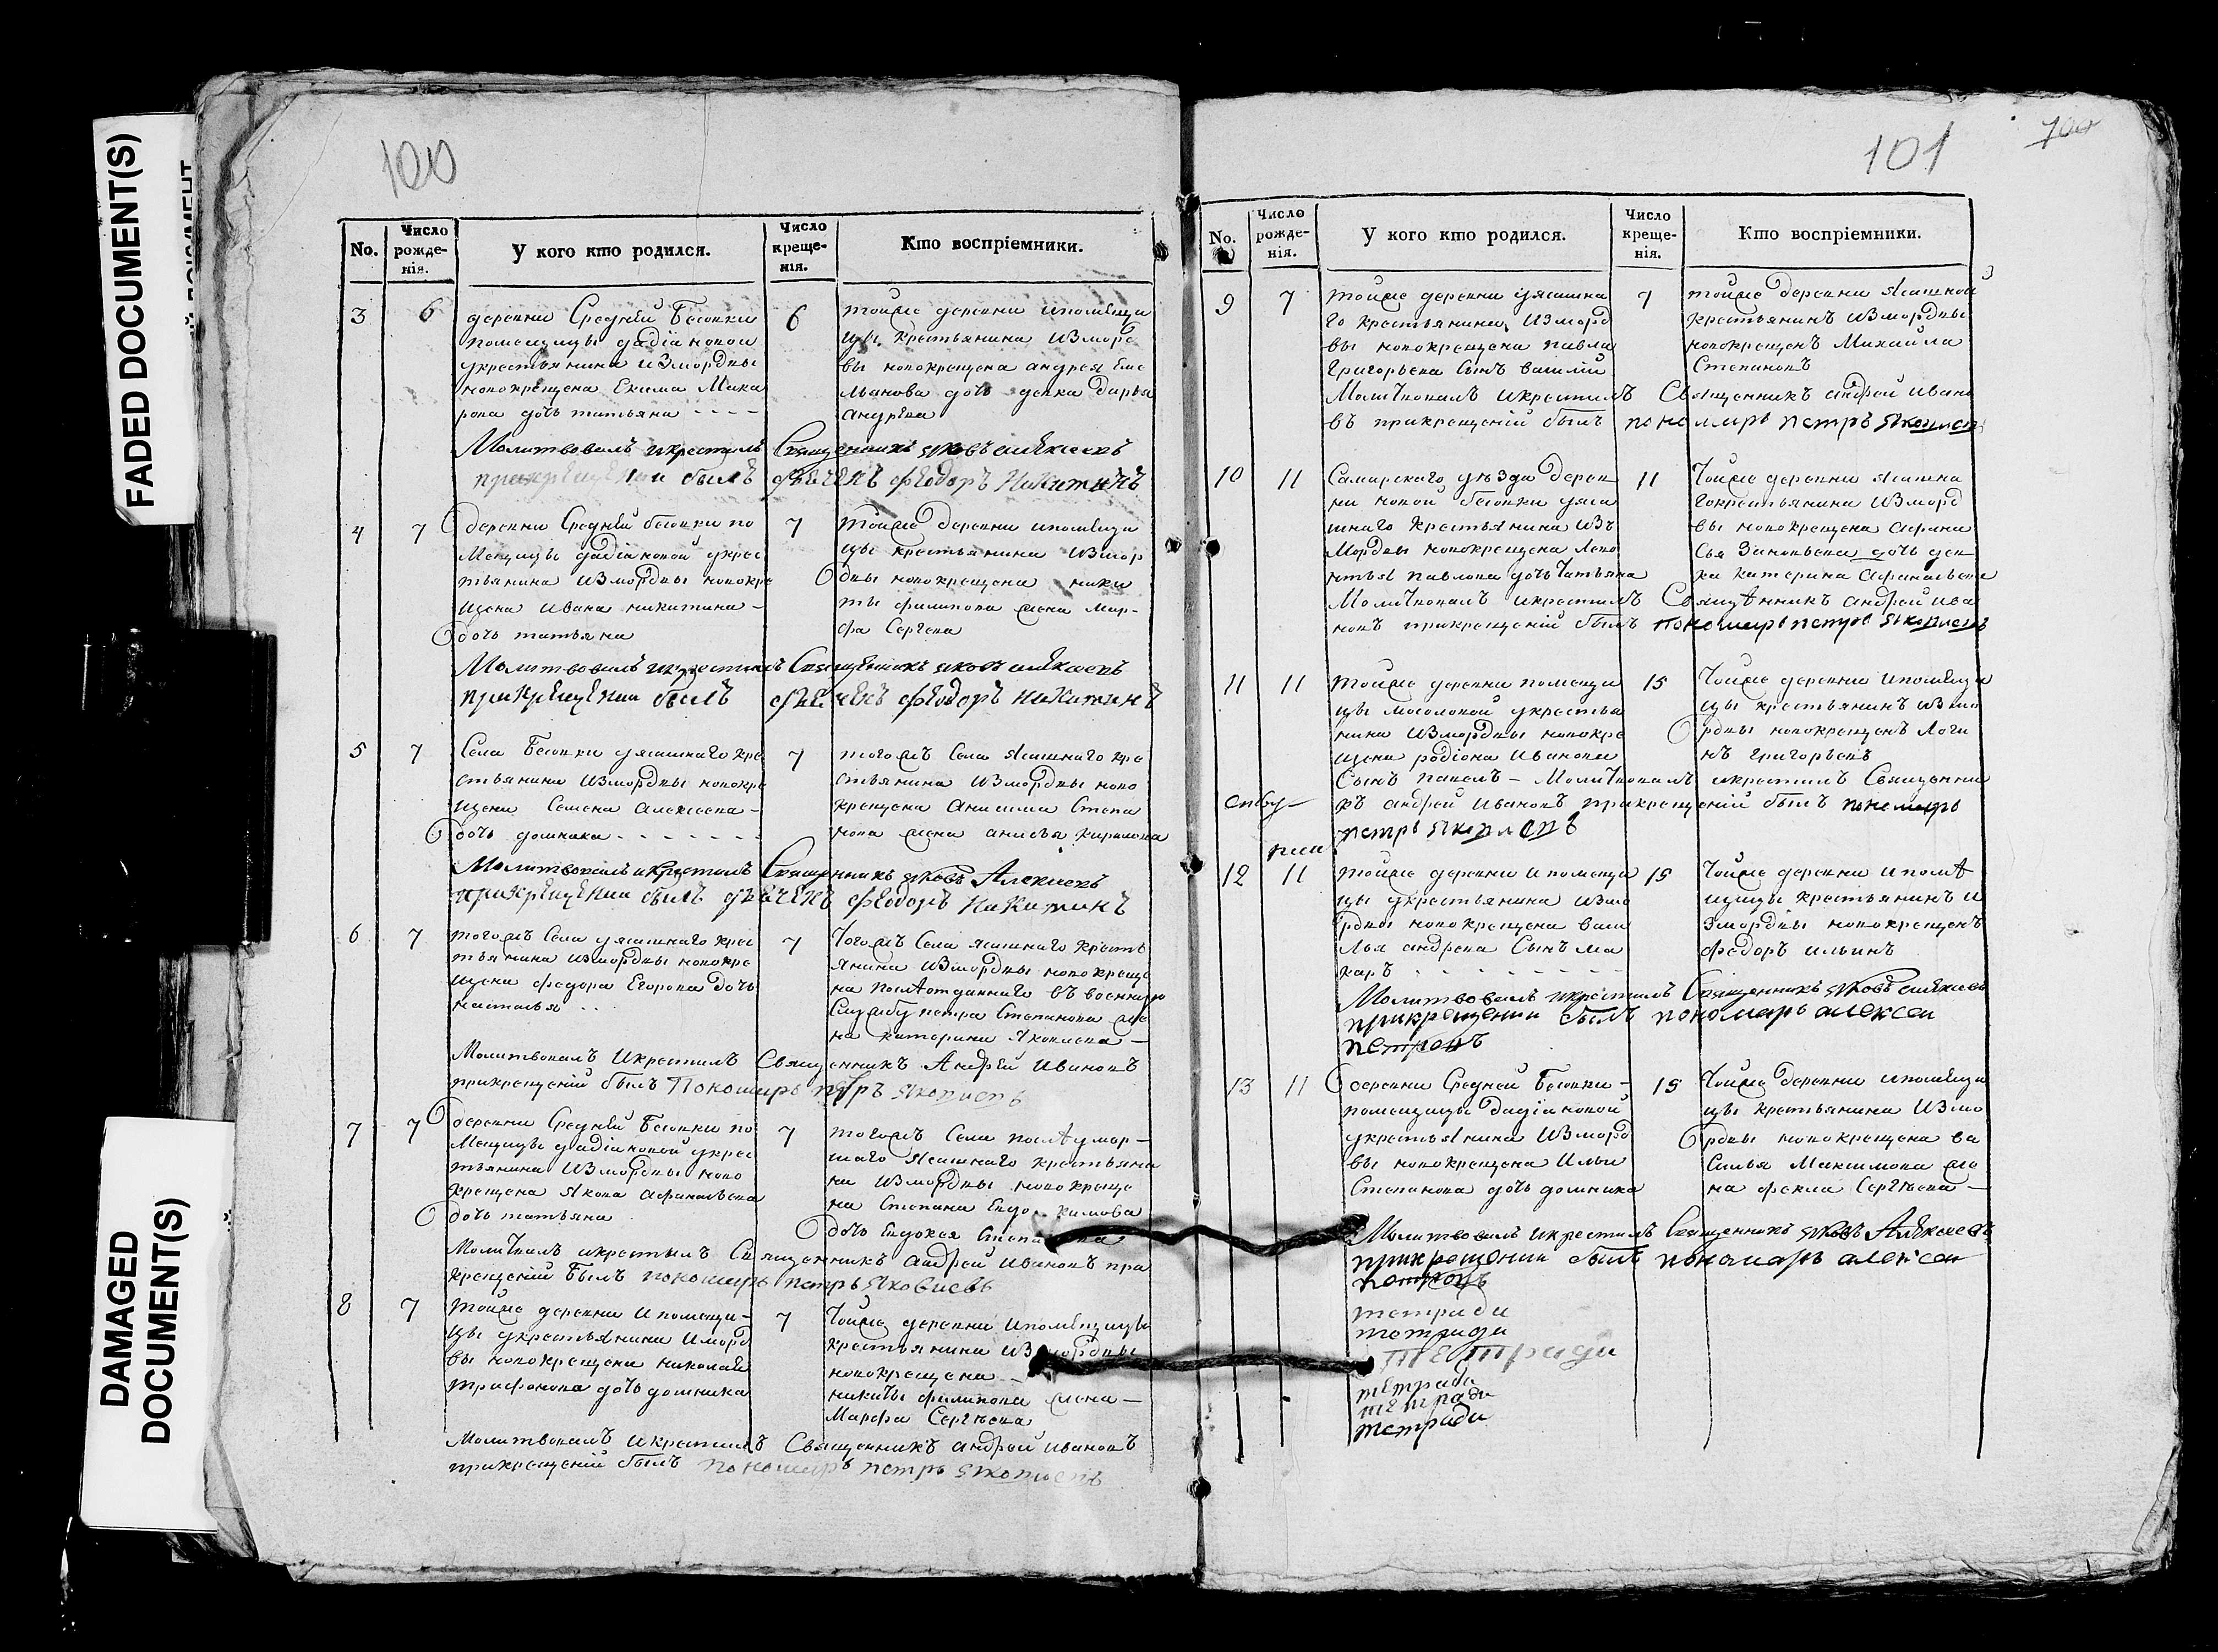 FADED DOCUMENT(S)
DAMAGED
DOCUMENT(S)
100
No.
Число
рожде-
нія.
У кого кто родился.
Число
креще-
нія.
Кто воспріемники.
3
6
деревни Средней Бесовки
помещицы дадіановои
укрестьянина измордвы
новокрещена Екима Мака
рова дочь татьяна - - - -
6
тойже деревни ипомещи
цы крестьянина измор
вы новокрещена андрея Еме
льянова дочь девка дарья
андрѣева
Молитвовалъ икрестилъ Священникъ яковъ алѣксѣевъ
прикрещении былъ дьячекъ фѣодоръ Никитинъ
4
7
деревни Средней бесовки по
мещицы дадіановой укрес
тьянина измордвы новокре
щена ивана никитина -
дочь татьяна
7
тойже деревни ипомещи
цы крестьянина измор
двы новокрещена ники
ты филипова жена мар-
фа Сергѣева
Молитвовалъ икрестилъ Священникъ яковъ алѣксѣевъ
прикрещении былъ дьячекъ фѣодоръ никитинъ
5
7
Села Бесовки уясашнаго кре
стьянина измордвы новокре
щена Семена алексеева -
дочь домника - - - - - - -
7
тогожъ Села Ясашнаго кре
стьянина измордвы ново
крещена Анисима Степа
нова жена анисья кирилова
Молитвовалъ икрестилъ Священникъ яковъ Алексеевъ
прикрещении былъ дьячекъ фѣодоръ Никитинъ
6
7
тогожъ Села уясашнаго крес
тьянина измордвы новокре
щена федора Егорова дочь
наталья . .
7
Тогожъ Села ясашнаго кресть
янина измордвы новокреще
на послѣ отданнаго въ военную
Службу петра Степанова же
на катерина Яковлева -
Молитвовалъ Икрестилъ Священникъ Андрей Ивановъ
прикрещеній былъ Пономарь петръ яковлевъ
7
7
деревни Средней Бесовки по
Мещицы дадіановой укрес
тьянина измордвы ново
крещена Якова афанасьева
дочь татьяна
7
тогожъ Села послѣ умер-
шаго Ясашнаго крестьяни
на измордвы новокреще
на Степана Евдокимова
дочь Евдокея Степанова
икрестилъ Священникъ андрей ивановъ при
крещеній былъ пономарь петръ Яковлевъ
8
7
тойже деревни ипомещи-
цы укрестьянина имордвы
новокрещена николая
трифонова дочь домника
7
Тойже деревни ипомещицы
крестьянина измордвы
новокрещена -
никиты филипова жена -
Марфа Сергѣева
Молитвовалъ икрестилъ Священникъ андрей ивановъ
прикрещеній былъ пономарь петръ яковлевъ
101
100
No.
Число
рожде-
нія.
У кого кто родился.
Число
креще-
нія.
Кто воспріемники.
9
7
тойже деревни уясашна
го крестьянина изморд
вы новокрещена павла
Григорьева Сынъ василій
7
тойже деревни Ясашной
крестьянинъ измордвы
новокрещенъ Михайла
Степановъ
Молитвовалъ икрестилъ Священникъ андрей ивано
въ прикрещеній былъ пономарь петръ Яковлевъ
10
11
Самарскаго уѣзда дерев
ни новой бесовки уяса
шнаго крестьянина изъ
Мордвы новокрещена Леко
нтья павлова дочь Татьяна
11
Тойже деревни ясашна
гокрестьянина изморд
вы новокрещена афана
сья Зиновьева дочь дев
ка катерина афанасьева
Молитвовалъ икрестилъ Священникъ андрей ива
новъ прикрещеній былъ пономарь петръ яковлевъ
11
11
тойже деревни помещи
цы Мосоловой укрестья
нина измордвы новокре
щена родіона иванова
Сынъ павелъ - Молитвовалъ икрестилъ Священни
къ андрей ивановъ прикрещеній былъ пономарь
петръ яковлевъ
15
Тойже деревни ипомещи
цы крестьянинъ измо
рдвы новокрещенъ Логи
нъ григорьевъ
12
11
тойже деревни ипомещи
цы укрестьянина измо
рдвы новокрещена васи
лья андреева Сынъ ма
каръ - - - - - - - -
15
Тойже деревни ипомѣ
щицы крестьянинъ и
змордвы новокрещенъ
федоръ ильинъ
Молитвовалъ икрестилъ Священникъ яковъ алѣксѣевъ
прикрещении былъ пономарь алексеи
петровъ
13
11
деревни Средней Бесовки -
помещицы дадіановой
укрестьянина изморд
вы новокрещена Ильи
Степанова дочь домника
15
Тойже деревни ипомещи
цы крестьянина измо
рдвы новокрещена ва
силья Максимова же
на фекла Сергѣева -
Молитвовалъ икрестилъ Священникъ яковъ Алѣксеевъ
прикрещении былъ пономарь алексеи
петровъ
тетради
тетради
тетради
тетради
тетради
тетради